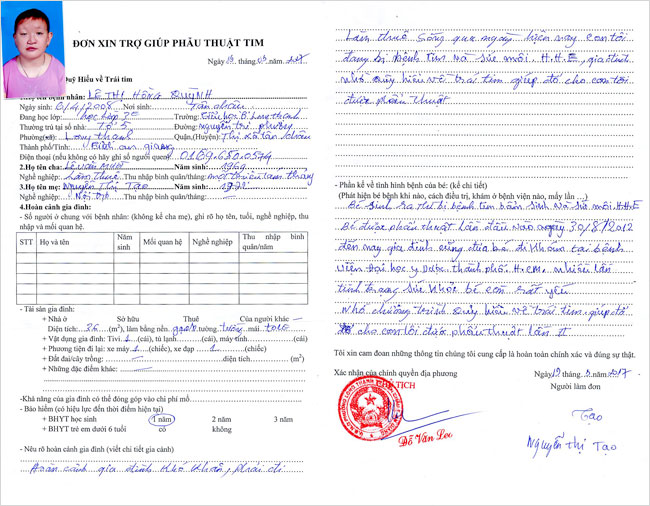 ĐƠN XIN TRỢ GIÚP PHẪU THUẬT TIM
Ngày 19 tháng 03 năm 2017
Quỹ Hiểu về Trái tim
tên bệnh nhân: LÊ THỊ HỒNG QUỲNH
Ngày sinh: 6/4/2008 Nơi sinh: Tân châu
Đang học lớp: Trường: Tiểu học B Long thạnh
Thường trú tại số nhà: Tổ 5 Đường: nguyễn tri phương
Phường(xã): Long thạnh Quận,(Huyện): Thị xã tân châu
Thành phố/Tỉnh: an giang
Điện thoại (nếu không có hãy ghi số người quen): 0169.650.0574
2.Họ tên cha: Lê văn Năm sinh: 1969
Nghề nghiệp: Làm thuê Thu nhập bình quân/tháng: một triệu tám tháng
3.Họ tên mẹ: Nguyễn Thị Tạo Năm sinh: 1972
Nghề nghiệp: Nội trợ Thu nhập bình quân/tháng:
4.Hoàn cảnh gia đình:
- Số người ở chung với bệnh nhân: (không kể cha mẹ), ghi rõ họ tên, tuổi, nghề nghiệp, thu
nhập và mối quan hệ.
STT Họ và tên Năm sinh Mối quan hệ Nghề nghiệp Thu nhập bình quân/năm
- Tài sản gia đình:
+ Nhà ở Sở hữu Thuê Của người khác
Diện tích: 26 (m²), làm bằng nền tường mái tole
+ Vật dụng gia đình: Tivi 1 (cái), tủ lạnh (cái), máy tính (cái)
+ Phương tiện đi lại: xe máy 1 (chiếc), xe đạp 1 (chiếc)
+ Đất đai/cây trồng: diện tích (m²)
+ Những đặc điểm khác:
-Khả năng của gia đình có thể đóng góp vào chi phí mổ
- Bảo hiểm (có hiệu lực đến thời điểm hiện tại)
+ BHYT học sinh 1 năm 2 năm 3 năm
+ BHYT trẻ em dưới 6 tuổi có không
- Nêu rõ hoàn cảnh gia đình (viết chi tiết gia cảnh)
Hoàn cảnh gia đình khó khăn, phải đi
Làm thuê sống qua ngày hiện nay con tôi
đang bị bệnh tim và sức môi H.H.E, gia đình
nhờ quỹ hiểu về trái tim giúp đỡ cho con tôi
được phẫu thuật
- Phần kể về tình hình bệnh của bé: (kể chi tiết)
(Phát hiện bé bệnh khi nào, cách điều trị, khám ở bệnh viện nào, mấy lần ...)
Bé sinh ra thì bị bệnh tim bẩm sinh và sức môi H.H.E
Bé được phẫu thuật lần đầu vào ngày 30/8/2012
đến nay gia đình cũng đưa bé đi khám tại bệnh
viện Đại học y dược thành phố H.cm. nhiều lần
tình trạng sức khỏe bé còn rất yếu
Nhờ chương trình quỹ hiểu về trái tim, giúp đỡ
cho con tôi được phẫu thuật lần II
Tôi xin cam đoan những thông tin chúng tôi cung cấp là hoàn toàn chính xác và đúng sự thật.
Xác nhận của chính quyền địa phương Ngày 19 tháng 3 năm 2017
CHỦ TỊCH Người làm đơn
Tạo
Đỗ Văn Nguyễn Thị Tạo